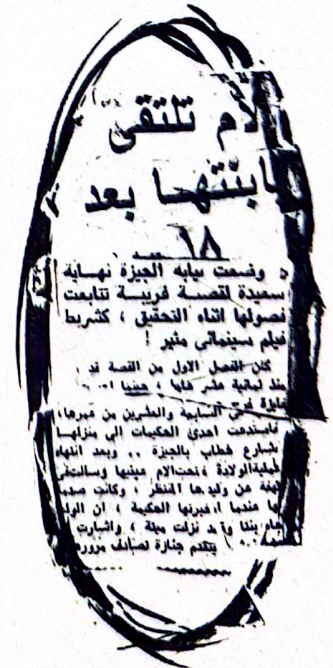 الأم تلتقى
بابنتها بعد
١٨
وضعت نيابه الجيزة نهاية
سعيدة لقصة غريبة تتابعت
فصولها اثناء التحقيق ، كشريط
فيلم سينمائى مثير !
كان الفصل الاول من القصة قد
منذ ثمانية عشر عاما ، عندما
فى السابعة والعشرين من عمرها ،
فاستدعت احدى الحكيمات الى منزلها
بشارع خطاب بالجيزة .. وبعد انتهاء
عملية الولادة فتحت الام عينيها وسألت فى
لهفة عن وليدها المنتظر ، وكانت
عندما اخبرتها الحكيمة ، ان
نزلت ميتة ، واشارت
جنازة تصادف مرورها